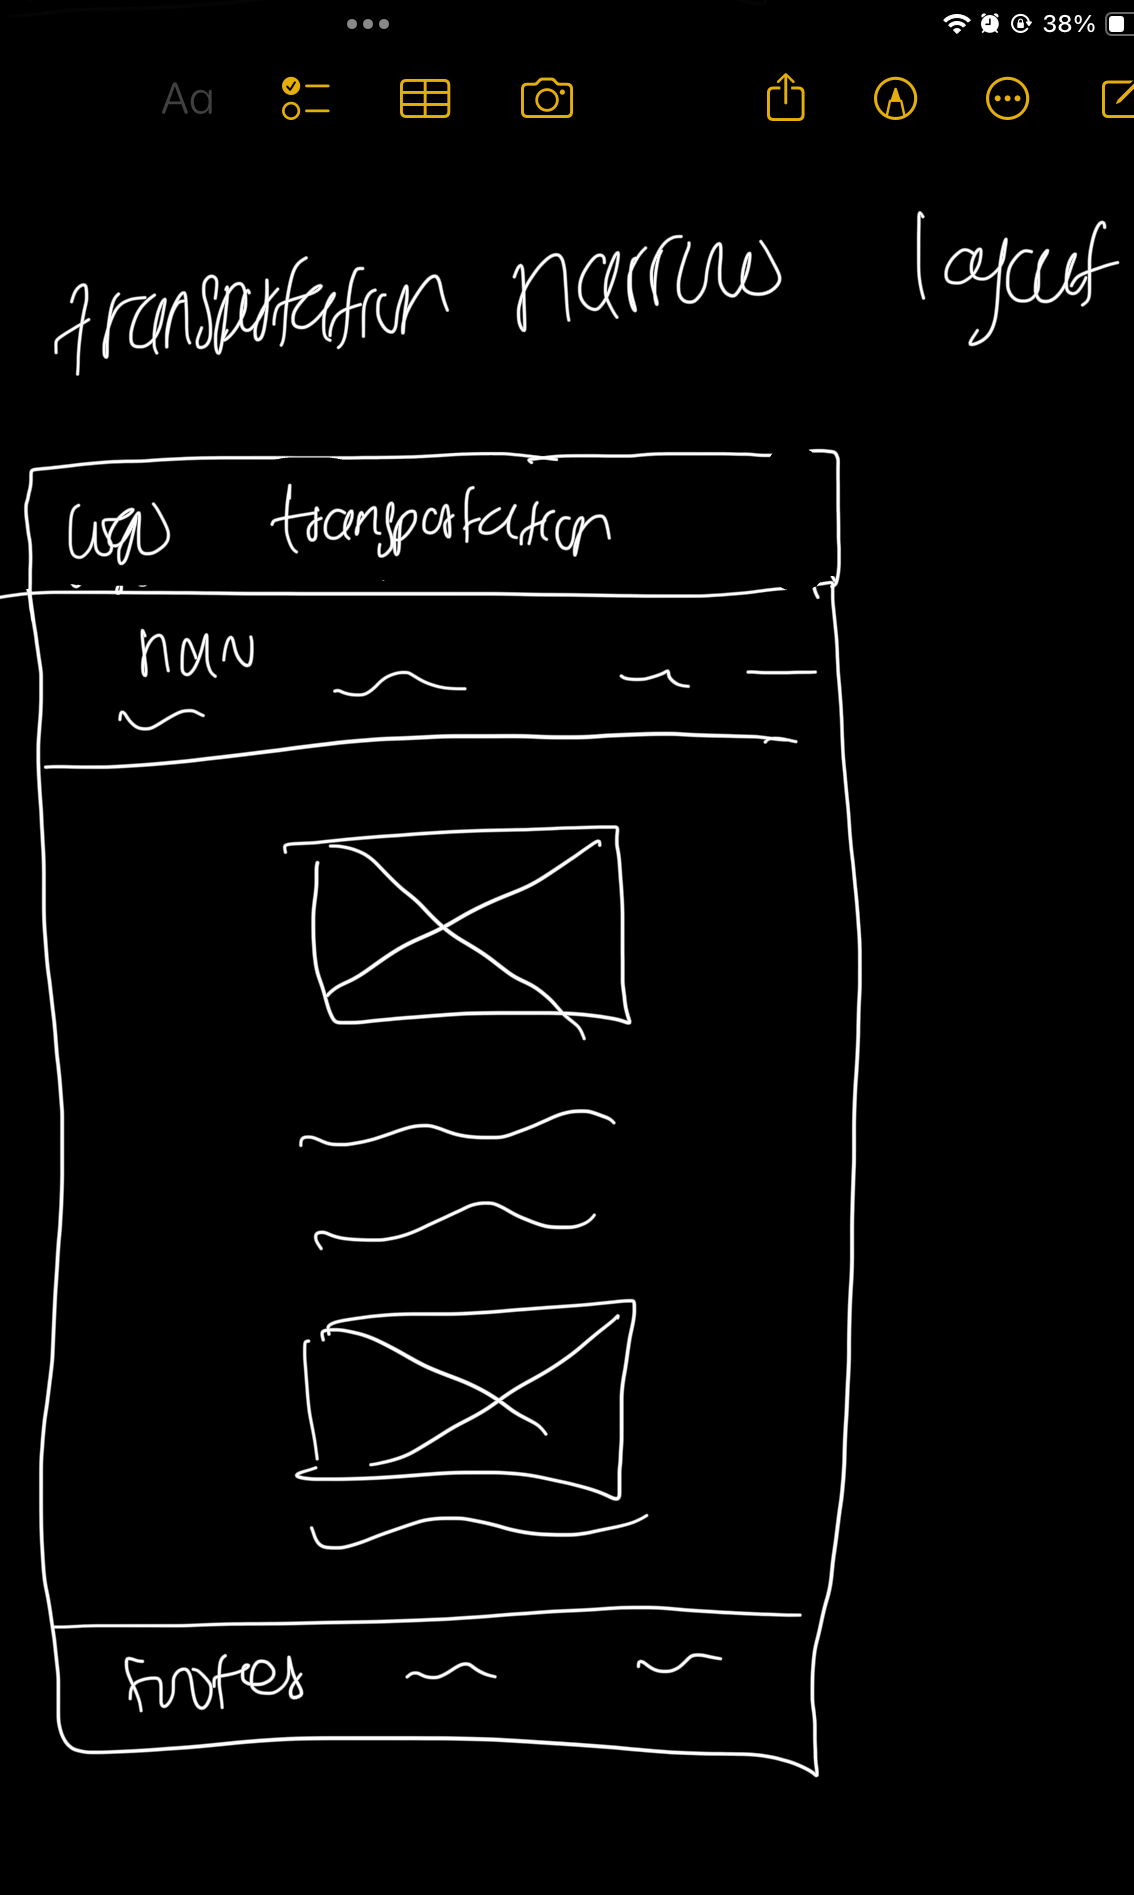 38%
Aa
transportation narrow layout
logo transportation
nav
footer